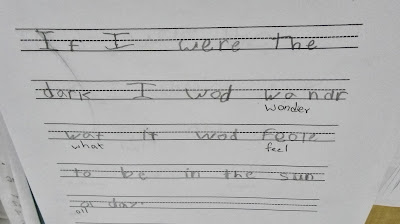 If I were the
dark I wod wandr
wonder
wat it wod foole
what feel
to be in the sun
ol day.
all